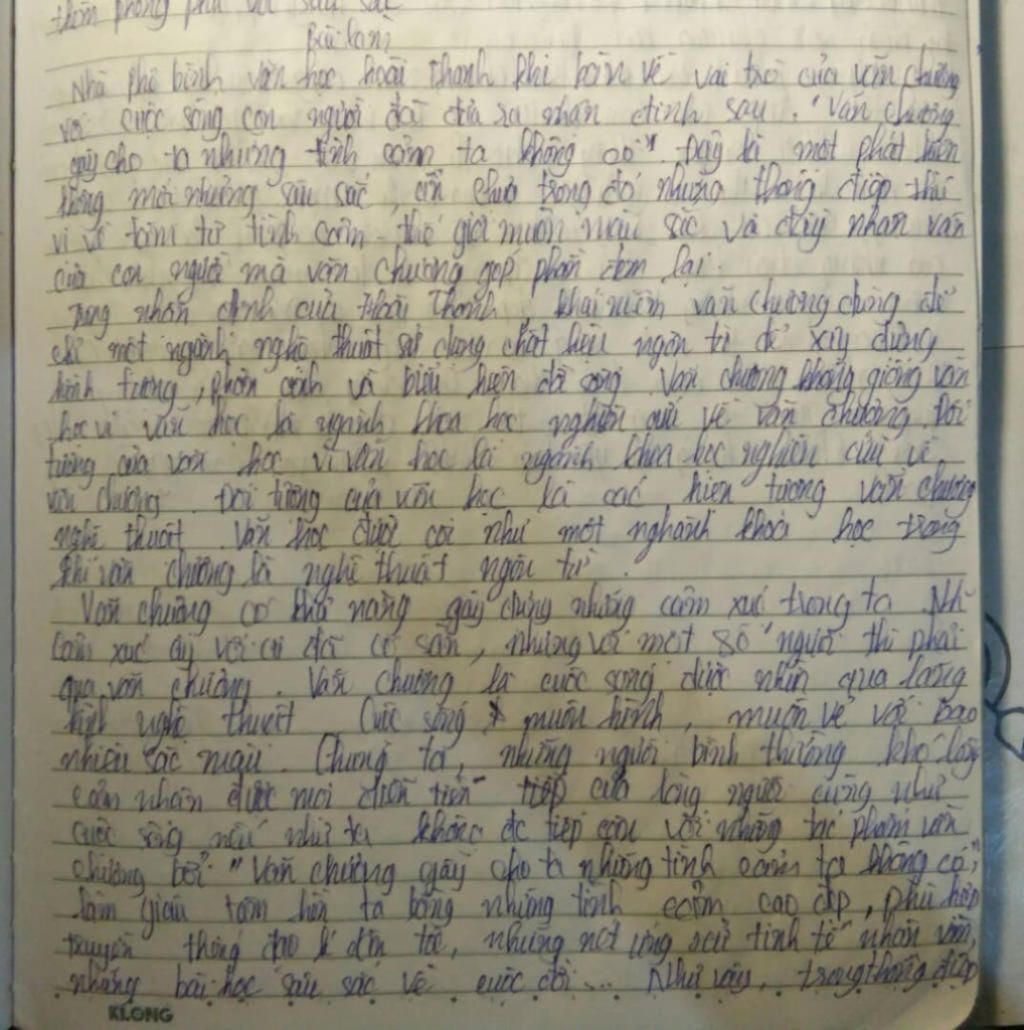 thêm phong phú và sâu sắc
Bài làm
Nhà phê bình văn học hoài thanh khi bàn về vai trò của văn chương
với cuộc sống con người đã đưa ra nhận định sau. "Văn chương
gây cho ta những tình cảm ta không có". Đây là một phát hiện
không mới nhưng sâu sắc, ẩn chứa trong đó những thông điệp thú
vị về tâm tư tình cảm - thế giới muôn màu sắc và đầy nhân văn
của con người mà văn chương góp phần đem lại.
Trong nhận định của Hoài Thanh, khái niệm văn chương dùng để
chỉ một ngành nghệ thuật sử dụng chất liệu ngôn từ để xây dựng
hình tượng, phản ánh và biểu hiện đời sống. Văn chương không giống văn
học vì văn học là ngành khoa học nghiên cứu về văn chương. Đối
tượng của văn học vì văn học là ngành khoa học nghiên cứu về
văn chương. Đối tượng của văn học là các hiện tượng văn chương
nghệ thuật. Văn học được coi như một nghành khoa học trong
khi văn chương là nghệ thuật ngôn từ.
Văn chương có khả năng gây dựng những cảm xúc trong ta. Nh
cảm xúc ấy với ai đã có sẵn, nhưng với một số người thì phải
qua văn chương. Văn chương là cuộc sống được nhìn qua lăng
kính nghệ thuật. Cuộc sống muôn hình, muôn vẻ với bao
nhiêu sắc màu. Chúng ta, những người bình thường khó lòng
cảm nhận được mọi diễn tiến tiếp của lòng người cũng như
cuộc sống nếu như ta không đc tiếp cận với những tác phẩm văn
chương bởi "Văn chương gây cho ta những tình cảm ta không có",
làm giàu tâm hồn ta bằng những tình cảm cao đẹp, phù hợp
truyền thống đạo lí dân tộc, những nét ứng xử tinh tế nhân văn,
những bài học sâu sắc về cuộc đời... Như vậy, trong thông điệp
KLONG